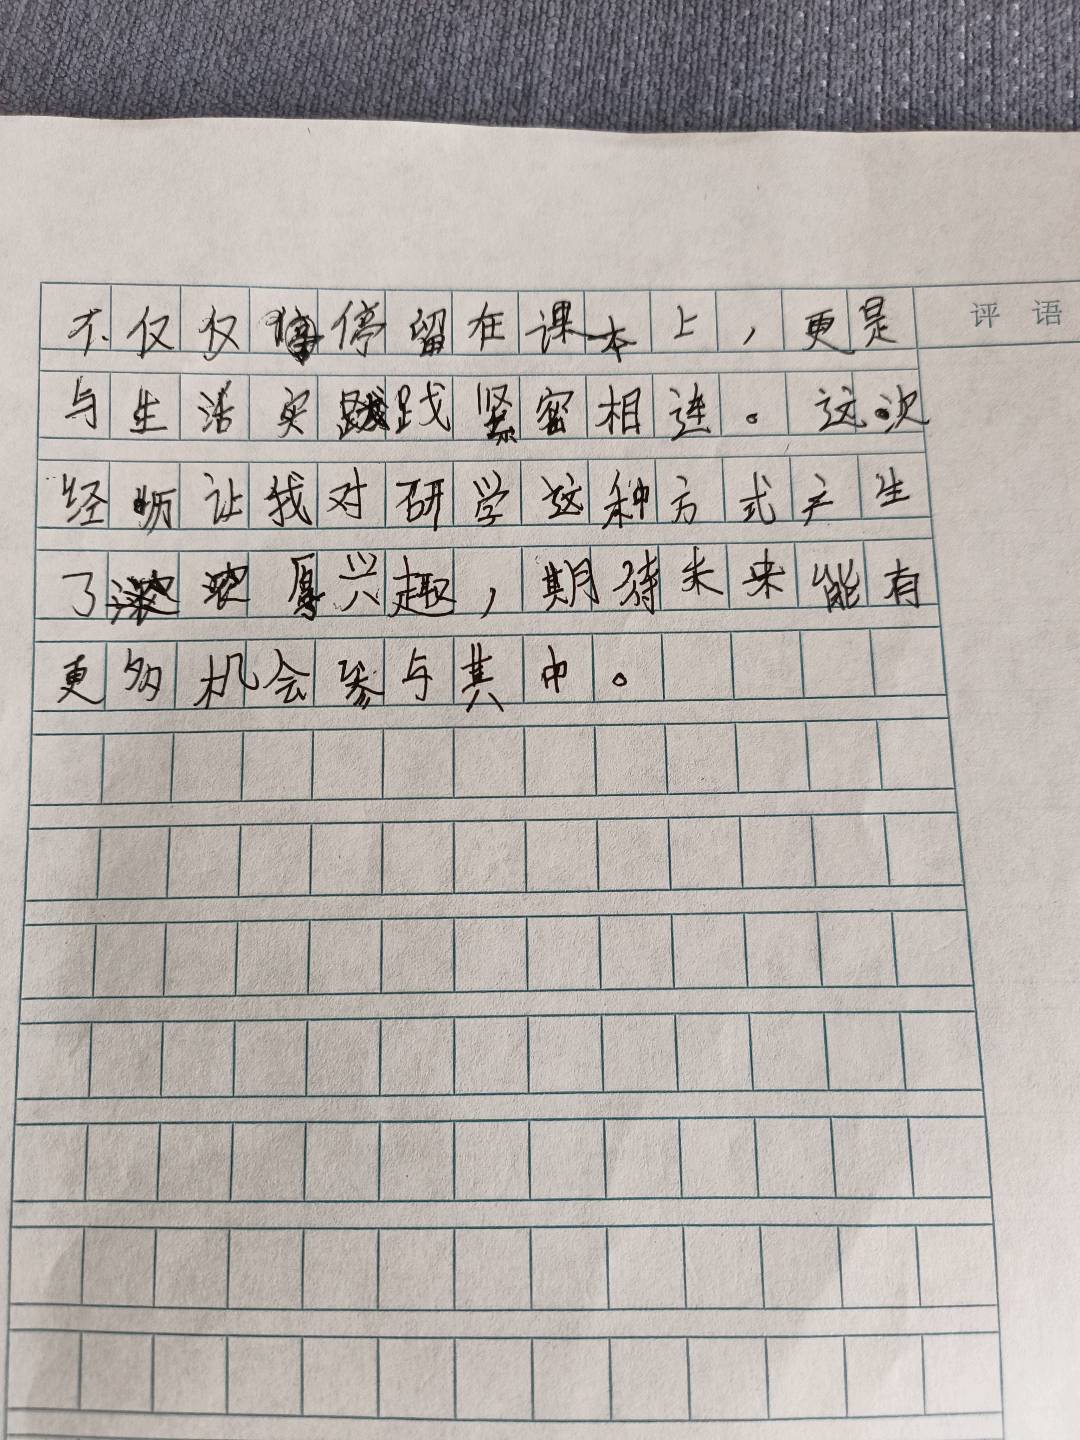 不仅仅停留在课本上，更是 评 语
与生活实践紧密相连。这次
经历让我对研学这种方式产生
了浓厚兴趣，期待未来能有
更多机会参与其中。